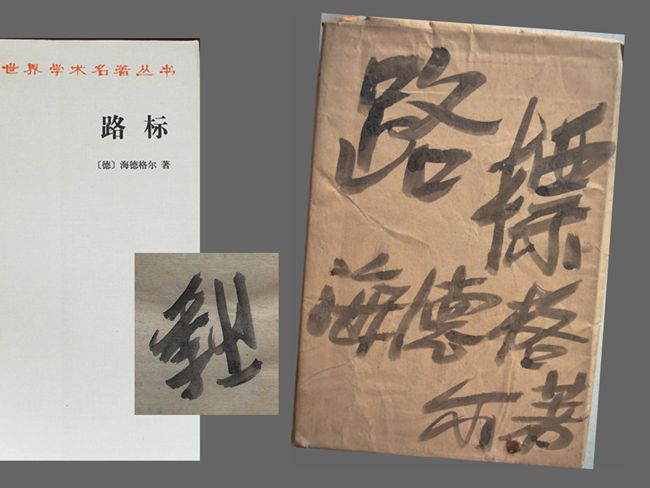 世界学术名著丛书
路标
〔德〕海德格尔 著
路標
海德格
尔著